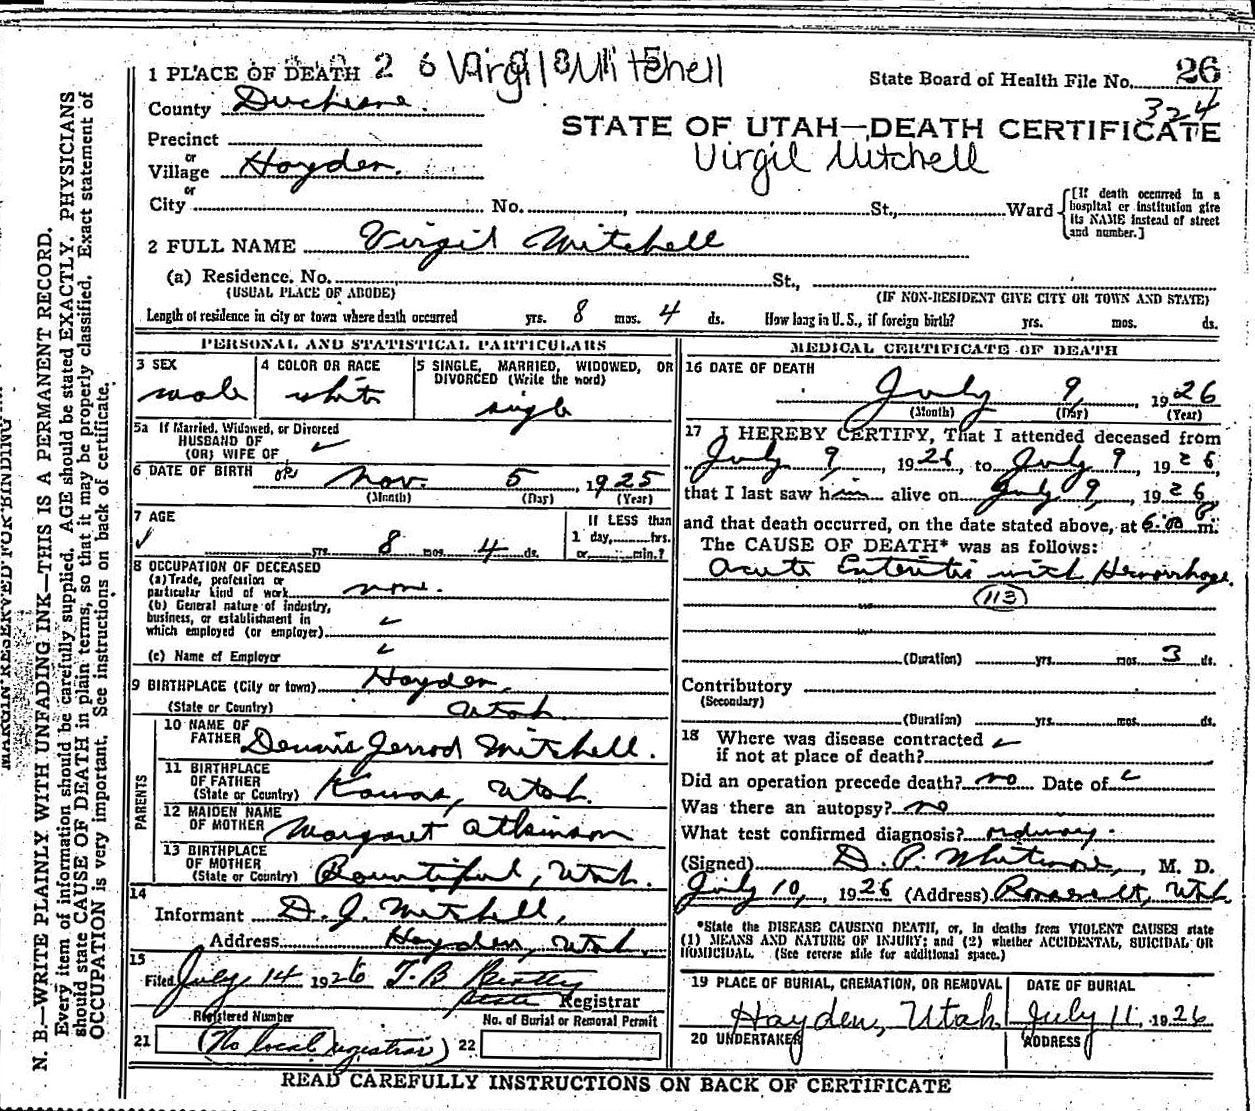 1 PLACE OF DEATH 2 6 Virgil Mitchell
State Board of Health File No. 26
324
County Duchesne.
STATE OF UTAH—DEATH CERTIFICATE
Virgil Mitchell
Precinct
or
Village Hayden.
or
City No. , St., Ward
[If death occurred in a hospital or institution give its NAME instead of street and number.]
2 FULL NAME Virgil Mitchell
(a) Residence. No. St.,
(USUAL PLACE OF ABODE) (IF NON-RESIDENT GIVE CITY OR TOWN AND STATE)
Length of residence in city or town where death occurred yrs. 8 mos. 4 ds. How long in U.S., if foreign birth? yrs. mos. ds.
PERSONAL AND STATISTICAL PARTICULARS
3 SEX male
4 COLOR OR RACE white
5 SINGLE, MARRIED, WIDOWED, OR DIVORCED (Write the word) single
5a If Married, Widowed, or Divorced
HUSBAND OF
(OR) WIFE OF
6 DATE OF BIRTH Nov. 5, 1925
(Month) (Day) (Year)
7 AGE
yrs. 8 mos. 4 ds.
If LESS than
1 day, hrs.
or min.?
8 OCCUPATION OF DECEASED
(a) Trade, profession or
particular kind of work none.
(b) General nature of industry,
business, or establishment in
which employed (or employer)
(c) Name of Employer
9 BIRTHPLACE (City or town) Hayden,
(State or Country) Utah.
PARENTS
10 NAME OF
FATHER Dennis Jerrod Mitchell.
11 BIRTHPLACE
OF FATHER
(State or Country) Kamas, Utah.
12 MAIDEN NAME
OF MOTHER Margaret Atkinson
13 BIRTHPLACE
OF MOTHER
(State or Country) Bountiful, Utah.
14
Informant D. J. Mitchell,
Address Hayden, Utah.
15
Filed July 14 1926 T. B. Beatty
State Registrar
Registered Number No. of Burial or Removal Permit
21 (No local registrar) 22
MEDICAL CERTIFICATE OF DEATH
16 DATE OF DEATH
July 9, 1926
(Month) (Day) (Year)
17 I HEREBY CERTIFY, That I attended deceased from
July 9, 1926, to July 9, 1926
that I last saw him alive on July 9, 1926
and that death occurred, on the date stated above, at 6:00 P m.
The CAUSE OF DEATH* was as follows:
Acute Enteritis with Hemorrhage.
(113)
(Duration) yrs. mos. 3 ds.
Contributory
(Secondary)
(Duration) yrs. mos. ds.
18 Where was disease contracted
if not at place of death?
Did an operation precede death? no Date of
Was there an autopsy? no
What test confirmed diagnosis? ordinary.
(Signed) D. P. Whitmore, M. D.
July 10, 1926 (Address) Roosevelt, Utah
*State the DISEASE CAUSING DEATH, or, in deaths from VIOLENT CAUSES state
(1) MEANS AND NATURE OF INJURY; and (2) whether ACCIDENTAL, SUICIDAL OR
HOMICIDAL. (See reverse side for additional space.)
19 PLACE OF BURIAL, CREMATION, OR REMOVAL DATE OF BURIAL
Hayden, Utah July 11, 1926
20 UNDERTAKER ADDRESS
READ CAREFULLY INSTRUCTIONS ON BACK OF CERTIFICATE
MARGIN RESERVED FOR BINDING
N. B.—WRITE PLAINLY WITH UNFADING INK—THIS IS A PERMANENT RECORD.
Every item of information should be carefully supplied. AGE should be stated EXACTLY. PHYSICIANS
should state CAUSE OF DEATH in plain terms, so that it may be properly classified. Exact statement of
OCCUPATION is very important. See instructions on back of certificate.